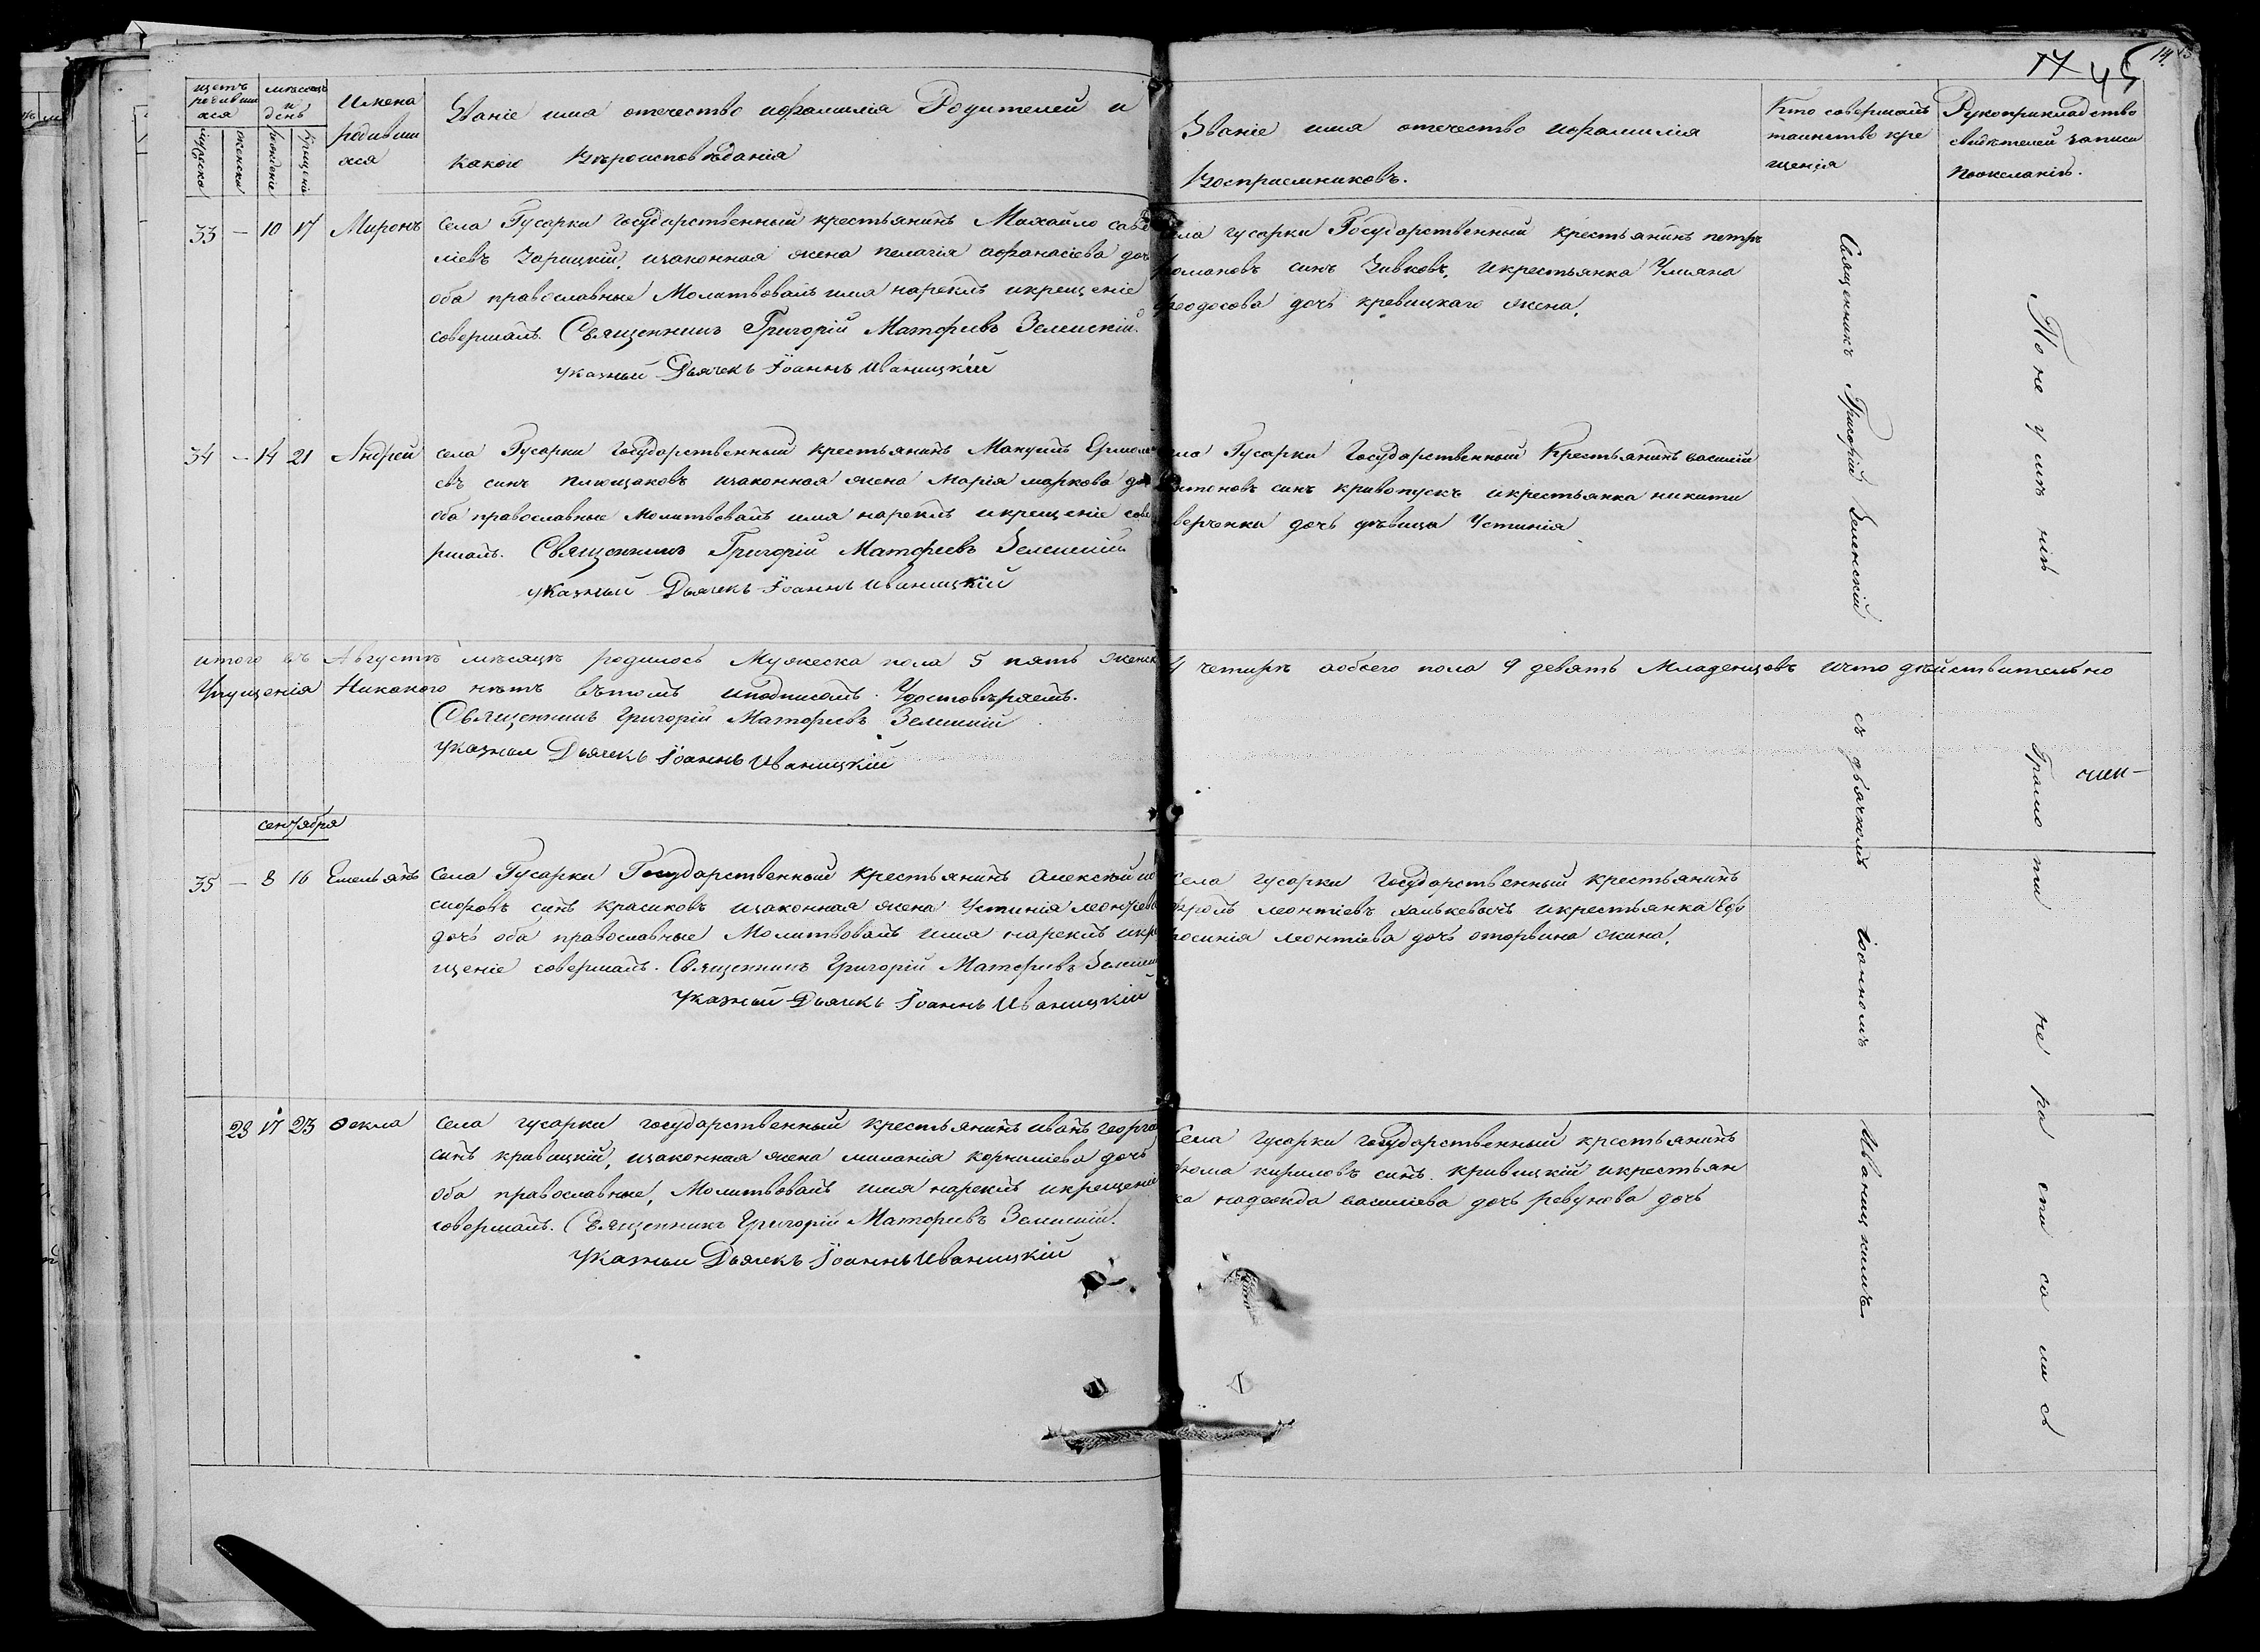 14 13
17 45
щетъ родивши хся
мужеска
женска
месяцъ и день
рожденіе
крещеніе
Имена родивши хся
Званіе има отечество ифамилія Родителей и
какого Вѣроисповѣданія
Званіе имя отечество ифамилія
Воспріемниковъ.
Кто совершалъ
таинство кре
щенія
Рукоприкладство
свидѣтелей записи
пожеланію.
33 — 10 17 Миронъ
села Гусарки государственный крестьянинъ Михайло саве
ліевъ Зарицкій, изаконная жена пелагія афанасіева доч
оба православные Молитвовалъ имя нарекъ икрещеніе
совершалъ. Священникъ Григорій Матфіевъ Зеленскій.
указный Дьячекъ Іоаннъ Иваницкій
села гусарки Государственный крестьянинъ петръ
романовъ синъ Зивковъ, икрестьянка Уліяна
феодосова дочь кревицкаго жена,
34 — 14 21 Андрей
села Гусарки государственный крестьянинъ Мануилъ Ермола
евъ синъ плющаковъ изаконная жена Марія маркова до
оба православные Молитвовалъ имя нарекъ икрещеніе сове
ршалъ. Священникъ Григорій Матфіевъ Зеленскій
указный Дьячекъ Іоаннъ Иваницкій
села Гусарки государственный Крестьянинъ василій
антоновъ синъ кривопускъ икрестьянка никити
верченка дочь дѣвица Устинія
итого въ Августѣ мѣсяцѣ родилось Мужеска пола 5 пять женск 4 четирѣ аобоего пола 9 девять Младенцовъ ичто дѣйствительно
Упущенія Никакого нѣтъ вътомъ иподписомъ Удостовѣряемъ.
Священникъ Григорій Матфіевъ Зеленскій
указный Дьячекъ Іоаннъ Иваницкій
сентября
35 — 8 16 Емельянъ
Села Гусарки Государственный крестьянинъ Алексѣй ио
сифовъ синъ красиковъ изаконная жена Устинія леонтіева
дочь оба православные Молитвовалъ имя нарекъ икре
щеніе совершалъ. Священникъ Григорій Матфіевъ Зеленск
указный Дьячекъ Іоаннъ Иваницкій
Села гусарки государственный крестьянинъ
фролъ леонтіевъ ханькевычъ икрестьянка Евф
росинія леонтіева дочь оторвина жина,
23 17 23 Фекла
Села гусарки государственный крестьянинъ иванъ георгіе
синъ кривицкій, изаконная жена миланія корниліева дочь
оба православные, Молитвовалъ имя нарекъ икрещеніе
совершалъ. Священникъ Григорій Матфіевъ Зеленскій.
указный Дьячекъ Іоаннъ Иваницкій
Села Гусарки государственный крестьянинъ
фома кириловъ синъ кривицкій икрестьян
ка надежда василіева дочь ревунова дочь
Священникъ Григорій Зеленскій съ дьячкомъ Іоанномъ Иваницкимъ
По не умѣ нію Грамоти не ра спи са ли сь